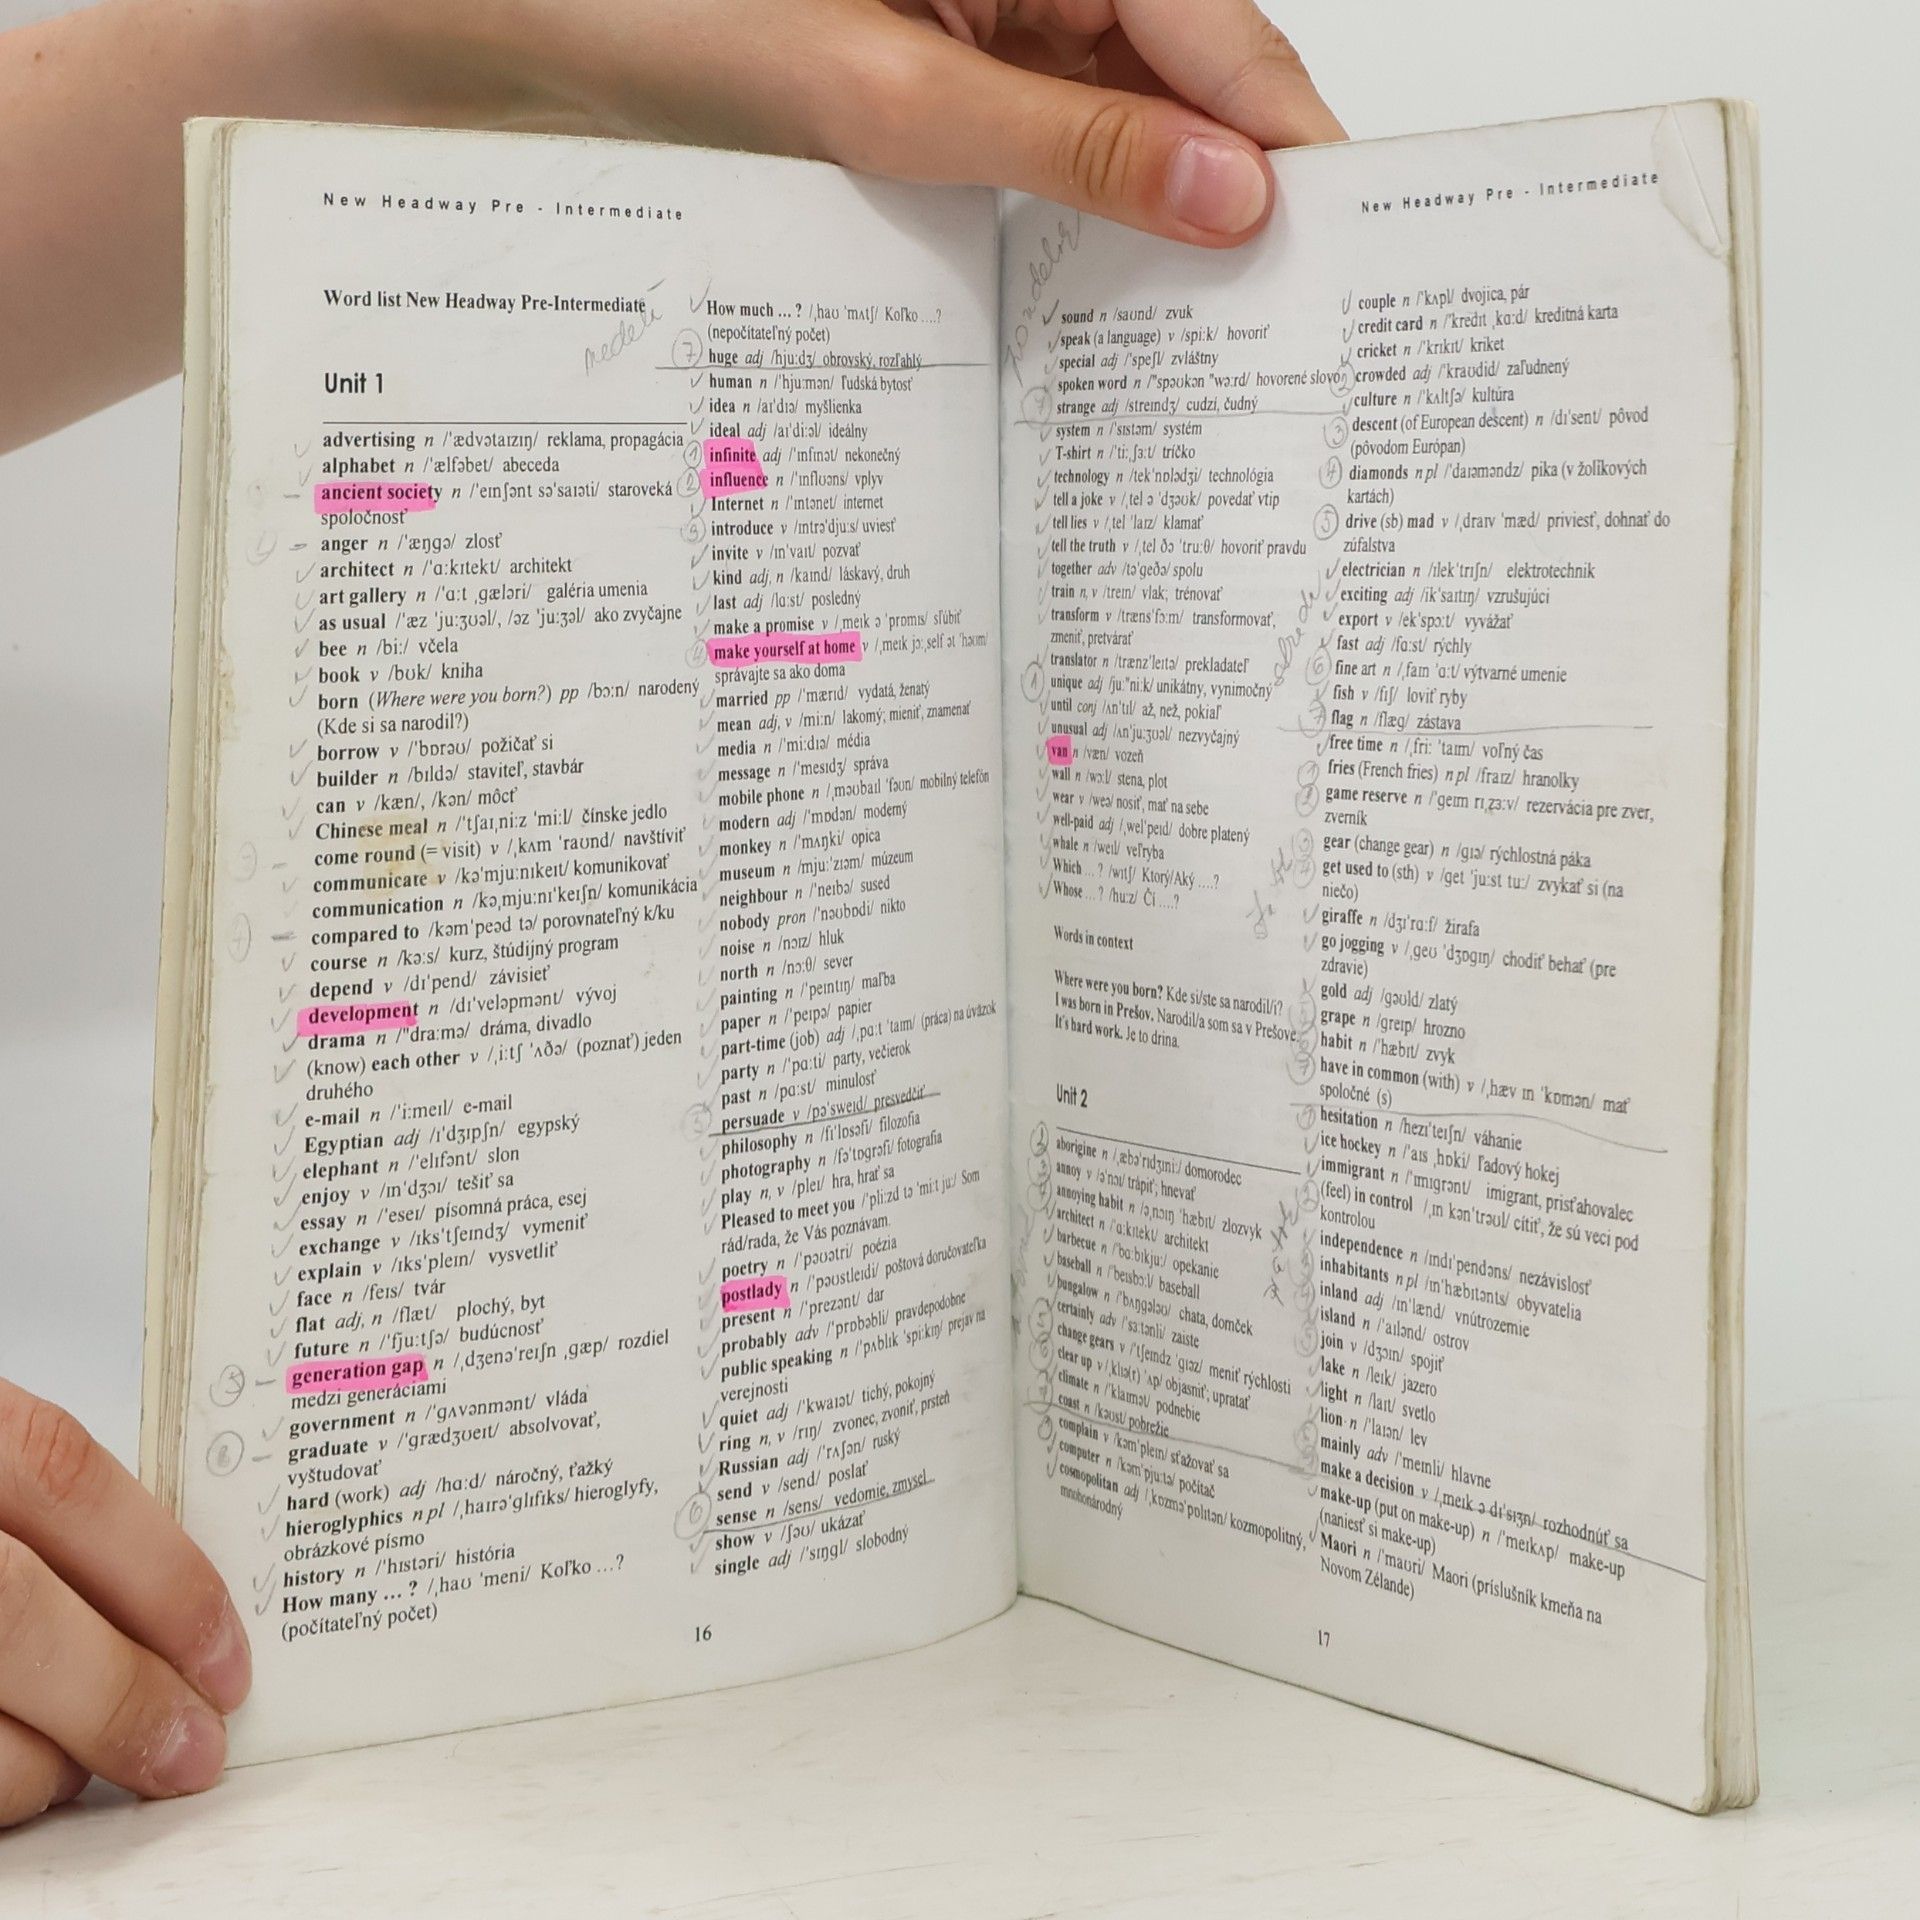 New Headway Pre - Intermediate
Word list New Headway Pre-Intermediate
Unit 1
advertising n /ˈædvətaɪzɪŋ/ reklama, propagácia
alphabet n /ˈælfəbet/ abeceda
ancient society n /ˈeɪnʃənt səˈsaɪəti/ staroveká
spoločnosť
anger n /ˈæŋgə/ zlosť
architect n /ˈɑːkɪtekt/ architekt
art gallery n /ˈɑːt ˌgæləri/ galéria umenia
as usual /ˈæz ˈjuːʒʊəl/, /əz ˈjuːʒəl/ ako zvyčajne
bee n /biː/ včela
book v /bʊk/ kniha
born (Where were you born?) pp /bɔːn/ narodený
(Kde si sa narodil?)
borrow v /ˈbɒrəʊ/ požičať si
builder n /bɪldə/ staviteľ, stavbár
can v /kæn/, /kən/ môcť
Chinese meal n /ˈtʃaɪˌniːz ˈmiːl/ čínske jedlo
come round (= visit) v /ˌkʌm ˈraʊnd/ navštíviť
communicate v /kəˈmjuːnɪkeɪt/ komunikovať
communication n /kəˌmjuːnɪˈkeɪʃn/ komunikácia
compared to /kəmˈpeəd tə/ porovnateľný k/ku
course n /kɔːs/ kurz, štúdijný program
depend v /dɪˈpend/ závisieť
development n /dɪˈveləpmənt/ vývoj
drama n /"drɑːmə/ dráma, divadlo
(know) each other v /ˌiːtʃ ˈʌðə/ (poznať) jeden
druhého
e-mail n /ˈiːmeɪl/ e-mail
Egyptian adj /ɪˈdʒɪpʃn/ egypský
elephant n /ˈelɪfənt/ slon
enjoy v /ɪnˈdʒɔɪ/ tešiť sa
essay n /ˈeseɪ/ písomná práca, esej
exchange v /ɪksˈtʃeɪndʒ/ vymeniť
explain v /ɪksˈpleɪn/ vysvetliť
face n /feɪs/ tvár
flat adj, n /flæt/ plochý, byt
future n /ˈfjuːtʃə/ budúcnosť
generation gap n /ˌdʒenəˈreɪʃn ˌgæp/ rozdiel
medzi generáciami
government n /ˈgʌvənmənt/ vláda
graduate v /ˈgrædʒʊeɪt/ absolvovať,
vyštudovať
hard (work) adj /hɑːd/ náročný, ťažký
hieroglyphics n pl /ˌhaɪrəˈglɪfɪks/ hieroglyfy,
obrázkové písmo
history n /ˈhɪstəri/ história
How many ... ? /ˌhaʊ ˈmeni/ Koľko ...?
(počítateľný počet)
How much ... ? /ˌhaʊ ˈmʌtʃ/ Koľko ....?
(nepočítateľný počet)
huge adj /hjuːdʒ/ obrovský, rozľahlý
human n /ˈhjuːmən/ ľudská bytosť
idea n /aɪˈdɪə/ myšlienka
ideal adj /aɪˈdiːəl/ ideálny
infinite adj /ˈɪnfɪnət/ nekonečný
influence n /ˈɪnflʊəns/ vplyv
Internet n /ˈɪntənet/ internet
introduce v /ɪntrəˈdjuːs/ uviesť
invite v /ɪnˈvaɪt/ pozvať
kind adj, n /kaɪnd/ láskavý, druh
last adj /lɑːst/ posledný
make a promise v /ˌmeɪk ə ˈprɒmɪs/ sľúbiť
make yourself at home v /ˌmeɪk jɔːˌself ət ˈhəʊm/
správajte sa ako doma
married pp /ˈmærɪd/ vydatá, ženatý
mean adj, v /miːn/ lakomý; mieniť, znamenať
media n /ˈmiːdɪə/ média
message n /ˈmesɪdʒ/ správa
mobile phone n /ˌməʊbaɪl ˈfəʊn/ mobilný telefón
modern adj /ˈmɒdən/ moderný
monkey n /ˈmʌŋki/ opica
museum n /mjuːˈzɪəm/ múzeum
neighbour n /ˈneɪbə/ sused
nobody pron /ˈnəʊbɒdi/ nikto
noise n /nɔɪz/ hluk
north n /nɔːθ/ sever
painting n /ˈpeɪntɪŋ/ maľba
paper n /ˈpeɪpə/ papier
part-time (job) adj /ˌpɑːt ˈtaɪm/ (práca) na úväzok
party n /ˈpɑːti/ party, večierok
past n /pɑːst/ minulosť
persuade v /pəˈsweɪd/ presvedčiť
philosophy n /fɪˈlɒsəfi/ filozofia
photography n /fəˈtɒgrəfi/ fotografia
play n, v /pleɪ/ hra, hrať sa
Pleased to meet you /ˈpliːzd tə ˈmiːt juː/ Som
rád/rada, že Vás poznávam.
poetry n /ˈpəʊətri/ poézia
postlady n /ˈpəʊstleɪdi/ poštová doručovateľka
present n /ˈprezənt/ dar
probably adv /ˈprɒbəbli/ pravdepodobne
public speaking n /ˈpʌblɪk ˈspiːkɪŋ/ prejav na
verejnosti
quiet adj /ˈkwaɪət/ tichý, pokojný
ring n, v /rɪŋ/ zvonec, zvoniť, prsteň
Russian adj /ˈrʌʃən/ ruský
send v /send/ poslať
sense n /sens/ vedomie, zmysel
show v /ʃəʊ/ ukázať
single adj /ˈsɪŋgl/ slobodný
16
New Headway Pre - Intermediate
sound n /saʊnd/ zvuk
speak (a language) v /spiːk/ hovoriť
special adj /ˈspeʃl/ zvláštny
spoken word n /"spəʊkən "wɜːrd/ hovorené slovo
strange adj /streɪndʒ/ cudzí, čudný
system n /ˈsɪstəm/ systém
T-shirt n /ˈtiːˌʃɜːt/ tričko
technology n /tekˈnɒlədʒi/ technológia
tell a joke v /ˌtel ə ˈdʒəʊk/ povedať vtip
tell lies v /ˌtel ˈlaɪz/ klamať
tell the truth v /ˌtel ðə ˈtruːθ/ hovoriť pravdu
together adv /təˈgeðə/ spolu
train n, v /treɪn/ vlak; trénovať
transform v /trænsˈfɔːm/ transformovať,
zmeniť, pretvárať
translator n /trænzˈleɪtə/ prekladateľ
unique adj /juː"niːk/ unikátny, vynimočný
until conj /ʌnˈtɪl/ až, než, pokiaľ
unusual adj /ʌnˈjuːʒʊəl/ nezvyčajný
van n /væn/ vozeň
wall n /wɔːl/ stena, plot
wear v /weə/ nosiť, mať na sebe
well-paid adj /ˌwelˈpeɪd/ dobre platený
whale n /weɪl/ veľryba
Which ... ? /wɪtʃ/ Ktorý/Aký ....?
Whose ... ? /huːz/ Čí ....?
Words in context
Where were you born? Kde si/ste sa narodil/i?
I was born in Prešov. Narodil/a som sa v Prešove.
It's hard work. Je to drina.
Unit 2
aborigine n /ˌæbəˈrɪdʒɪniː/ domorodec
annoy v /əˈnɔɪ/ trápiť; hnevať
annoying habit n /əˌnɔɪŋ ˈhæbɪt/ zlozvyk
architect n /ˈɑːkɪtekt/ architekt
barbecue n /ˈbɑːbɪkjuː/ opekanie
baseball n /ˈbeɪsbɔːl/ baseball
bungalow n /ˈbʌŋgələʊ/ chata, domček
certainly adv /ˈsɜːtənli/ zaiste
change gears v /ˈtʃeɪndz ˈgɪəz/ meniť rýchlosti
clear up v /ˌklɪə(r) ˈʌp/ objasniť; upratať
climate n /ˈklaɪmət/ podnebie
coast n /kəʊst/ pobrežie
complain v /kəmˈpleɪn/ sťažovať sa
computer n /kəmˈpjuːtə/ počítač
cosmopolitan adj /ˌkɒzməˈpɒlɪtən/ kozmopolitný,
mnohonárodný
couple n /ˈkʌpl/ dvojica, pár
credit card n /ˈkredɪt ˌkɑːd/ kreditná karta
cricket n /ˈkrɪkɪt/ kriket
crowded adj /ˈkraʊdɪd/ zaľudnený
culture n /ˈkʌltʃə/ kultúra
descent (of European descent) n /dɪˈsent/ pôvod
(pôvodom Európan)
diamonds n pl /ˈdaɪəməndz/ pika (v žolíkových
kartách)
drive (sb) mad v /ˌdraɪv ˈmæd/ priviesť, dohnať do
zúfalstva
electrician n /ɪlekˈtrɪʃn/ elektrotechnik
exciting adj /ikˈsaɪtɪŋ/ vzrušujúci
export v /ekˈspɔːt/ vyvážať
fast adj /fɑːst/ rýchly
fine art n /ˌfaɪn ˈɑːt/ výtvarné umenie
fish v /fɪʃ/ loviť ryby
flag n /flæg/ zástava
free time n /ˌfriː ˈtaɪm/ voľný čas
fries (French fries) n pl /fraɪz/ hranolky
game reserve n /ˈgeɪm rɪˌzɜːv/ rezervácia pre zver,
zverník
gear (change gear) n /gɪə/ rýchlostná páka
get used to (sth) v /get ˈjuːst tuː/ zvykať si (na
niečo)
giraffe n /dʒɪˈrɑːf/ žirafa
go jogging v /ˌgeʊ ˈdʒɒgɪŋ/ chodiť behať (pre
zdravie)
gold adj /gəʊld/ zlatý
grape n /greɪp/ hrozno
habit n /ˈhæbɪt/ zvyk
have in common (with) v /ˌhæv ɪn ˈkɒmən/ mať
spoločné (s)
hesitation n /hezɪˈteɪʃn/ váhanie
ice hockey n /ˈaɪs ˌhɒki/ ľadový hokej
immigrant n /ˈɪmɪgrənt/ imigrant, prisťahovalec
(feel) in control /ˌɪn kənˈtrəʊl/ cítiť, že sú veci pod
kontrolou
independence n /ɪndɪˈpendəns/ nezávislosť
inhabitants n pl /ɪnˈhæbɪtənts/ obyvatelia
inland adj /ɪnˈlænd/ vnútrozemie
island n /ˈaɪlənd/ ostrov
join v /dʒɔɪn/ spojiť
lake n /leɪk/ jazero
light n /laɪt/ svetlo
lion n /ˈlaɪən/ lev
mainly adv /ˈmeɪnli/ hlavne
make a decision v /ˌmeɪk ə dɪˈsɪʒn/ rozhodnúť sa
make-up (put on make-up) n /ˈmeɪkʌp/ make-up
(naniesť si make-up)
Maori n /ˈmaʊri/ Maori (príslušník kmeňa na
Novom Zélande)
17